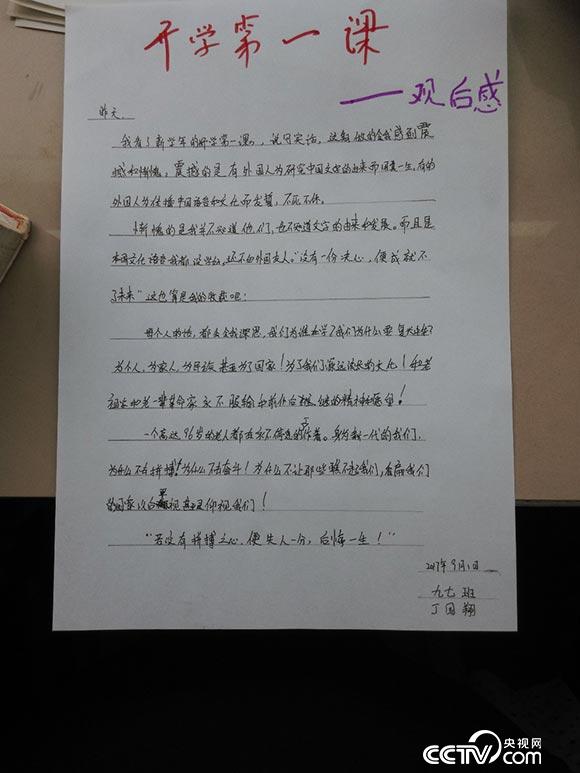 开学第一课
——观后感
昨天，
我看了新学年的开学第一课，说句实话，这
我感到震
撼和惭愧，震撼的是有外国人为研究中国文字的由来而用尽一生，有的
外国人为传播中国语言和文化而发奋，不死不休。
惭愧的是我并不知道他们，也不知道文字的由来和发展。而且是
本国文化语言我都没学好，还不如外国友人。“没有一份决心，便成就不
了未来”这也算是我的收获吧！
每个人的话，都会令我深思，我们为谁而学？我们为什么要
为个人，为家人，为民族甚至为了国家！为了我们源远流长的文化！和老
祖宗和老一辈革命家永不服输和前仆后继的精神和愿望！
一个高达96岁的老人都在永不停息的工作着。身为新一代的我们，
为什么不去拼搏！为什么不去奋斗！为什么不让那些瞧不起我们，看扁我们
的国家以
视甚至是仰视我们！
“若没有拼搏之心，便失人一分，后悔一生！”
2017年9月1日
九七班
丁国翔
CCTV.com 央视网